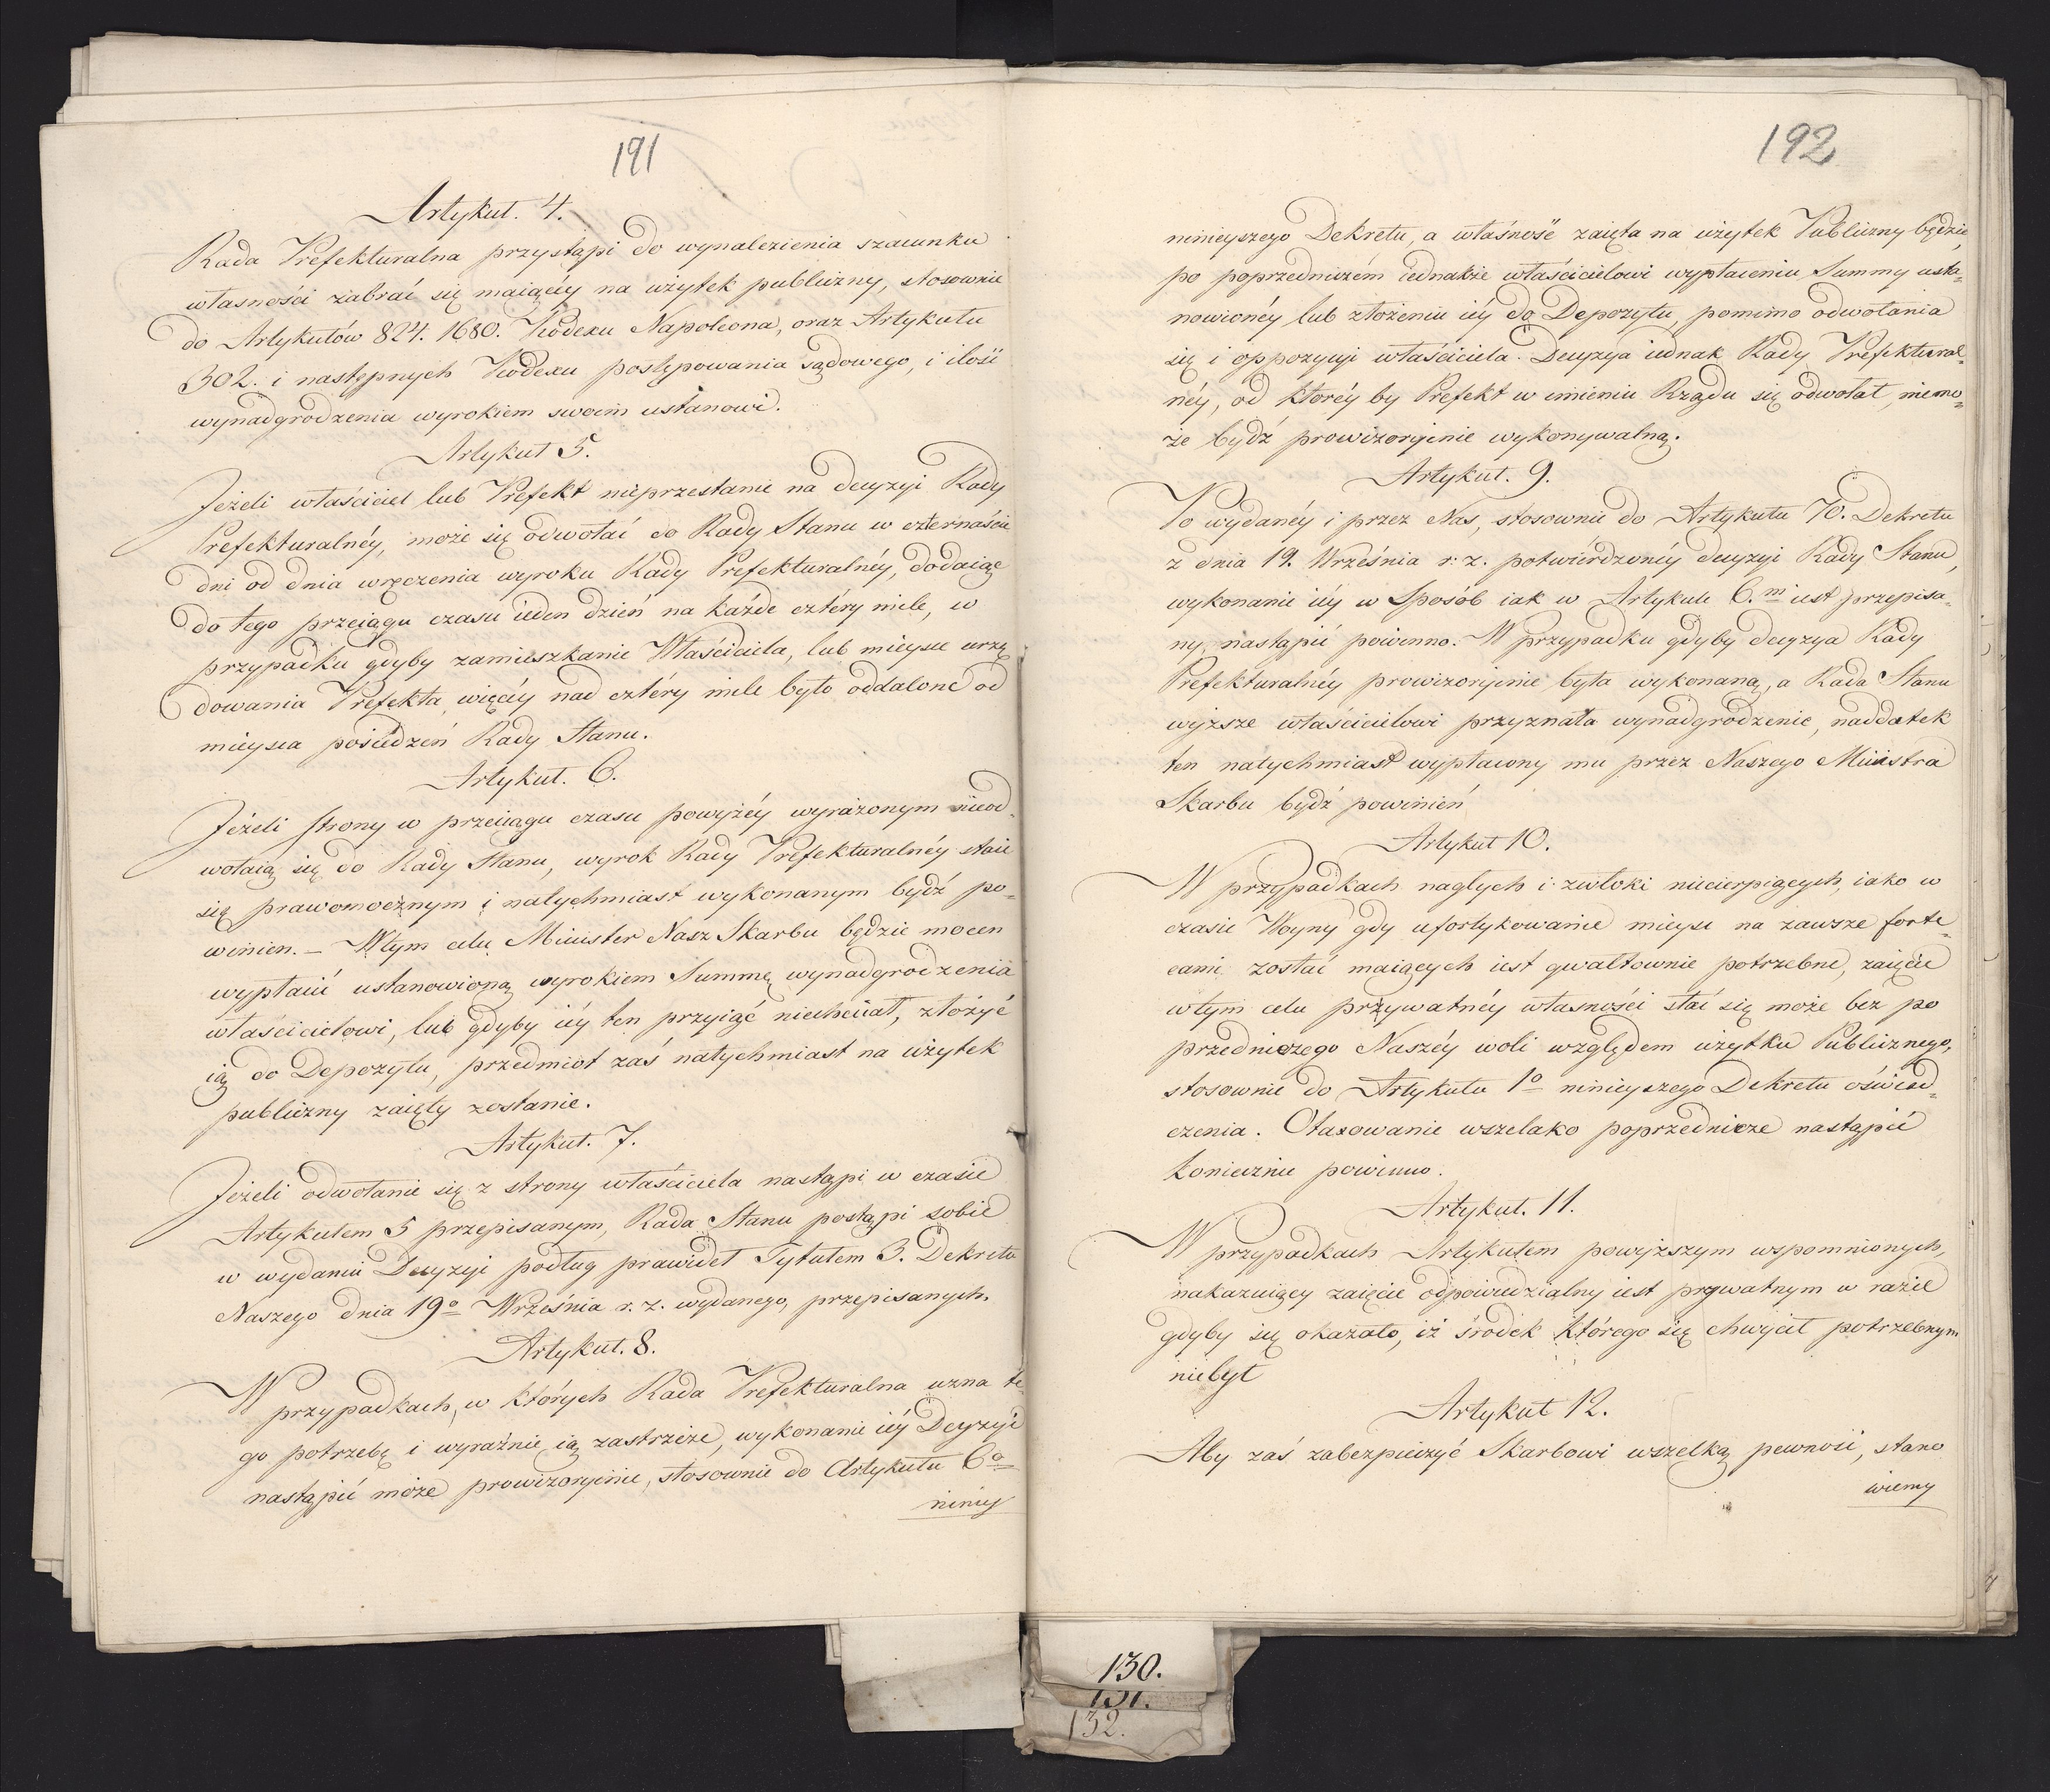 191
Artykuł. 4.
Rada Prefekturalna przystąpi do wynalezienia szacunku
własności zabrać się maiącéy na użytek publiczny, stosownie
do Artykułów 824. 1680. Kodexu Napoleona, oraz Artykułu
302. i następnych Kodexu postępowania sądowego, i ilość
wynadgrodzenia wyrokiem swoim ustanowi.
Artykuł 5.
Jeżeli właściciel lub Prefekt nieprzestanie na decyzyi Rady
Prefekturalnéy, może się odwołać do Rady Stanu w czternaście
dni od dnia wręczenia wyroku Rady Prefekturalnéy, dodaiąc
do tego przeciągu czasu ieden dzień na każde cztéry mile, w
przypadku gdyby zamieszkanie Właściciela, lub mieysce urzę
dowania Prefekta, więcéy nad cztéry mile było oddalone od
mieysca posiedzeń Rady Stanu.
Artykuł. 6.
Jeżeli strony w przeciągu czasu powyżéy wyrażonym nieod-
wołaią się do Rady Stanu, wyrok Rady Prefekturalnéy staie
się prawomocznym i natychmiast wykonanym bydź po-
winien. — W tym celu Minister Nasz Skarbu będzie mocen
wypłacić ustanowioną wyrokiem Summę wynadgrodzenia
właścicielowi, lub gdyby iéy ten przyiąć niechciał, złożyć
ią do Depozytu, przedmiot zaś natychmiast na użytek
publiczny zaięty zostanie.
Artykuł. 7.
Jeżeli odwołanie się z strony właściciela nastąpi w czasie
Artykułem 5 przepisanym, Rada Stanu postąpi sobie
w wydaniu Decyzyi podług prawideł Tytułem 3. Dekretu
Naszego dnia 19o Września r. z. wydanego, przepisanych.
Artykuł. 8.
W przypadkach, w których Rada Prefekturalna uzna te
go potrzebę i wyraźnie ią zastrzeże, wykonanie iéy Decyzyi
nastąpić może prowizoryjnie, stosownie do Artykułu 6o
niniey
192
ninieyszego Dekretu, a własność zaięta na użytek Publiczny będzie,
po poprzedniczém iednakże właścicielowi wypłaceniu Summy usta-
nowionéy lub złożeniu iéy do Depozytu, pomimo odwołania
się i oppozycyi właściciela. Decyzya iednak Rady Prefektural-
néy, od któréy by Prefekt w imieniu Rządu się odwołał, niemo-
że bydź prowizoryjnie wykonywalną.
Artykuł. 9.
Po wydanéy i przez Nas, stosownie do Artykułu 70. Dekretu
z dnia 19. Września r: z. potwierdzonéy decyzyi Rady Stanu,
wykonanie iéy w Sposób iak w Artykule 6.m iest przepisa-
ny, nastąpić powinno. W przypadku gdyby decyzya Rady
Prefekturalnéy prowizoryjnie była wykonaną, a Rada Stanu
wyższe właścicielowi przyznała wynadgrodzenie, naddatek
ten natychmiast wypłacony mu przez Naszego Ministra
Skarbu bydź powinień
Artykuł 10.
W przypadkach nagłych i zwłoki niecierpiących, iako w
czasie Woyny gdy ufortykowanie mieysc na zawsze forte-
cami zostać maiących iest gwałtownie potrzebne, zaięcie
w tym celu prżywatnéy własności stać się może bez po
przedniczego Naszéy woli względem użytku Publicznego,
stosownie do Artykułu 1o ninieyszego Dekretu oświad-
czenia. Otaxowanie wszelako poprzednicze nastąpić
koniecznie powinno.
Artykuł. 11.
W przypadkach Artykułem powyższym wspomnionych,
nakazuiący zaięcie odpowiedzialny iest prywatnym w razie
gdyby się okazało, iż środek którego się chwycił potrzebnym
niebył
Artykuł 12.
Aby zaś zabezpieczyć Skarbowi wszelką pewność, stano
wiemy
130.
131.
132.